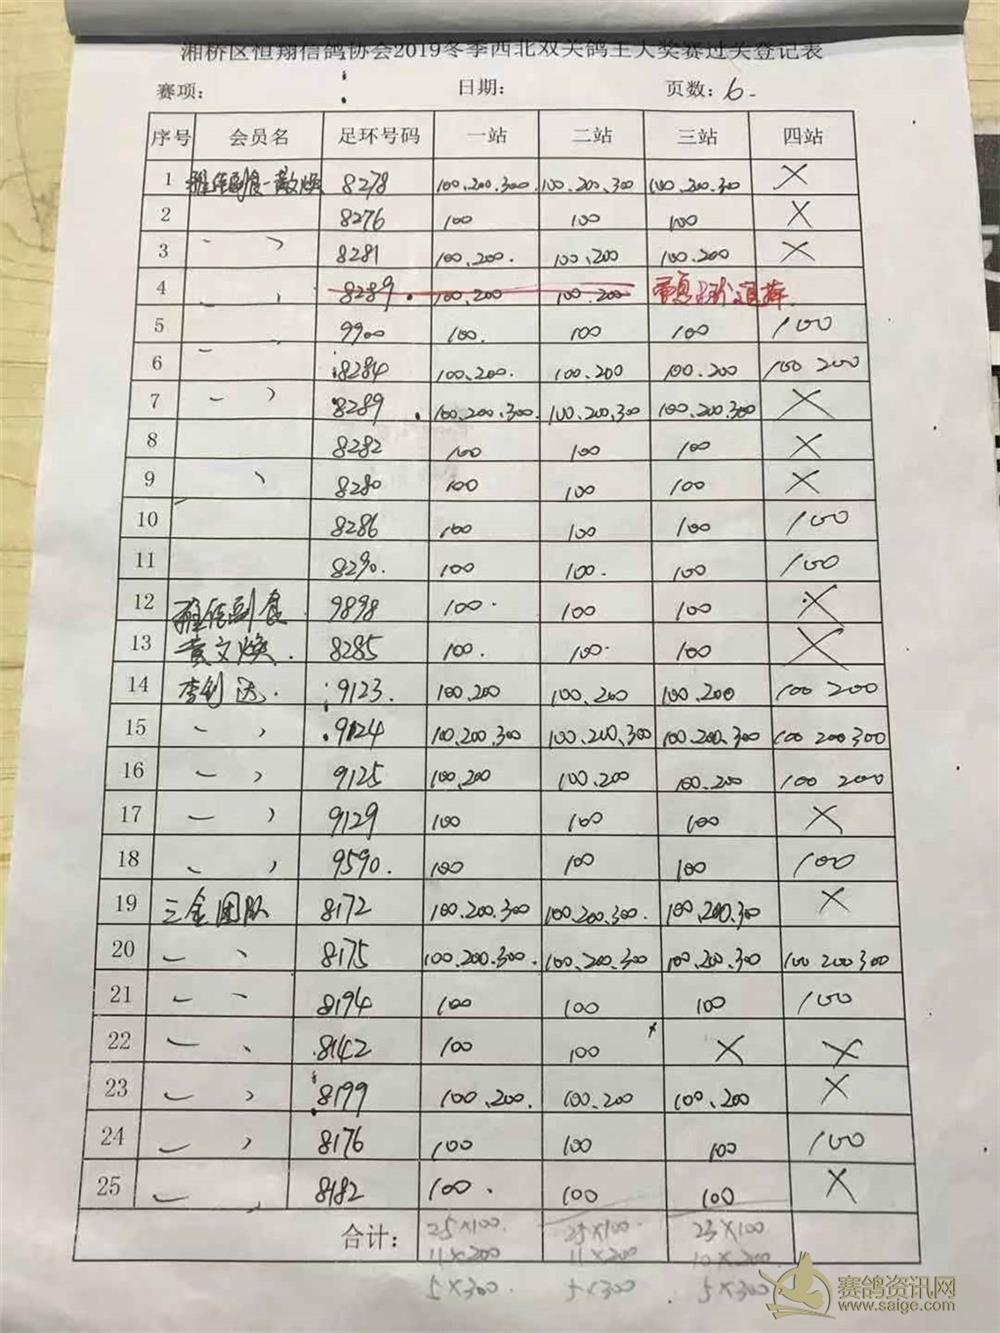 湘桥区恒翔信鸽协会2019冬季西北双关鸽王大奖赛过关登记表
赛项: 日期: 页数: 6.
序号 会员名 足环号码 一站 二站 三站 四站
1 雅佳副食-黄文焕 8278 100.200.300 100.200.300 100.200.300 X
2 8276 100 100 100 X
3 8281 100.200. 100.200 100.200 X
4 8289. 100.200 100.200
5 9900 100. 100 100 100
6 8284 100.200. 100.200 100.200 100 200
7 8289. 100.200.300. 100.200.300 100.200.300 X
8 8282 100 100 100 X
9 8280 100 100 100 X
10 8286 100 100 100 100
11 8290. 100 100. 100 100
12 雅佳副食 9898 100. 100 100 X
13 黄文焕. 8285 100. 100. 100 X
14 李创达. 9123. 100.200 100.200 100.200 100 200
15 9124 100.200.300 100.200.300 100.200.300 100 200 300
16 9125 100.200 100.200 100.200 100 200
17 9129 100 100 100 X
18 9590. 100 100 100 100
19 三金团队 8172 100.200.300 100.200.300. 100.200.300 X
20 8175 100.200.300. 100.200.300 100.200.300 100 200 300
21 8194 100 100 100 100
22 8142 100 100 X X
23 8199 100.200. 100.200 100.200 X
24 8176 100 100 100 100
25 8182 100. 100 100 X
合计: 25×100. 25×100. 23×100
11×200 11×200 10×200
5×300. 5×300 5×300
赛鸽资讯网
www.saige.com